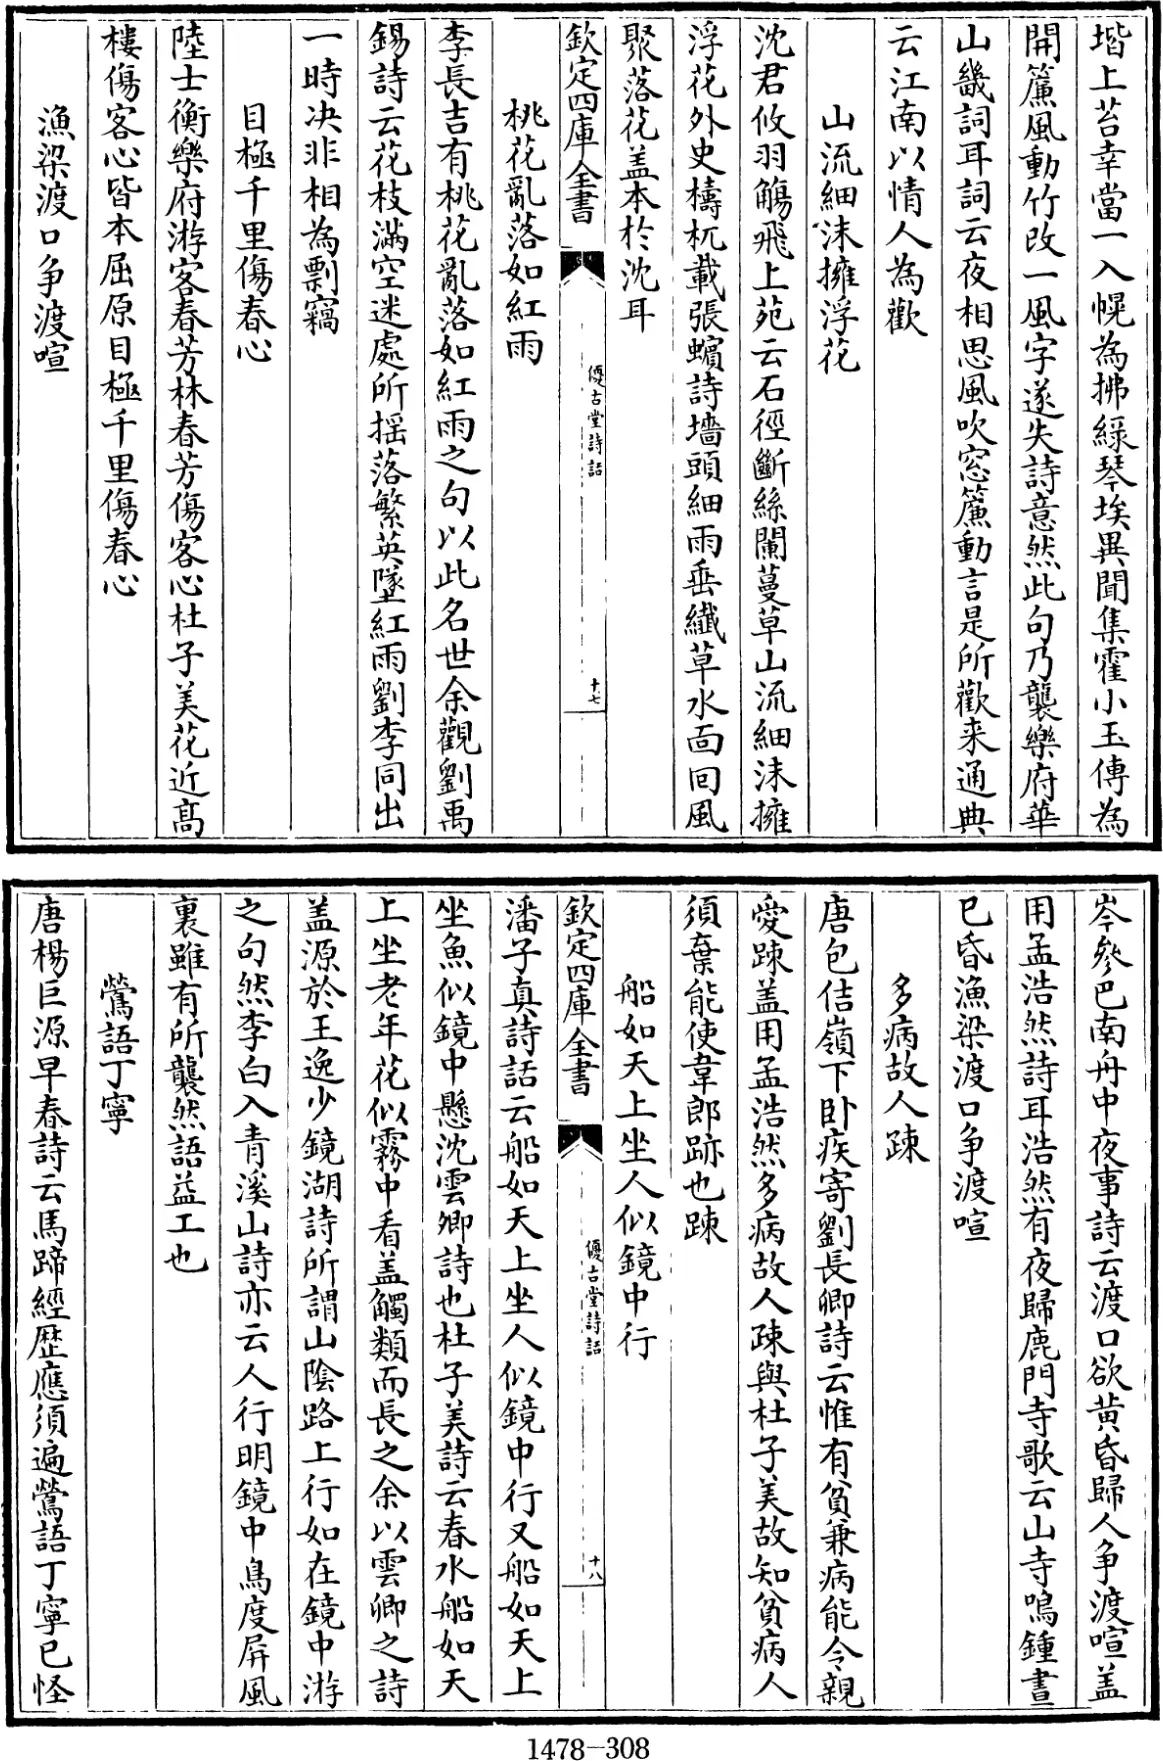 堦上苔幸當一入幌為拂緑琴埃異聞集霍小玉傳為
開簾風動竹改一風字遂失詩意然此句乃襲樂府華
山畿詞耳詞云夜相思風吹窓簾動言是所歡来通典
云江南以情人為歡
山流細沫擁浮花
沈君攸羽觴飛上苑云石徑斷絲闌蔓草山流細沫擁
浮花外史檮杌載張蠙詩墻頭細雨垂纎草水面回風
聚落花盖本於沈耳
欽定四庫全書
優古堂詩話
十七
桃花亂落如紅雨
李長吉有桃花亂落如紅雨之句以此名世余觀劉禹
錫詩云花枝滿空迷處所揺落繁英墜紅雨劉李同出
一時决非相為剽竊
目極千里傷春心
陸士衡樂府游客春芳林春芳傷客心杜子美花近髙
樓傷客心皆本屈原目極千里傷春心
漁梁渡口争渡喧
岑參巴南舟中夜事詩云渡口欲黄昏歸人争渡喧盖
用孟浩然詩耳浩然有夜歸鹿門寺歌云山寺鳴鍾晝
已昏漁梁渡口争渡喧
多病故人踈
唐包佶嶺下卧疾寄劉長卿詩云惟有貧兼病能令親
愛踈盖用孟浩然多病故人踈與杜子美故知貧病人
須棄能使韋郎跡也踈
船如天上坐人似鏡中行
欽定四庫全書
優古堂詩話
十八
潘子真詩話云船如天上坐人似鏡中行又船如天上
坐魚似鏡中懸沈雲卿詩也杜子美詩云春水船如天
上坐老年花似霧中看盖觸類而長之余以雲卿之詩
盖源於王逸少鏡湖詩所謂山隂路上行如在鏡中游
之句然李白入青溪山詩亦云人行明鏡中鳥度屏風
裏雖有所襲然語益工也
鶯語丁寧
唐楊巨源早春詩云馬蹄經歴應須遍鶯語丁寧已怪
1478-308